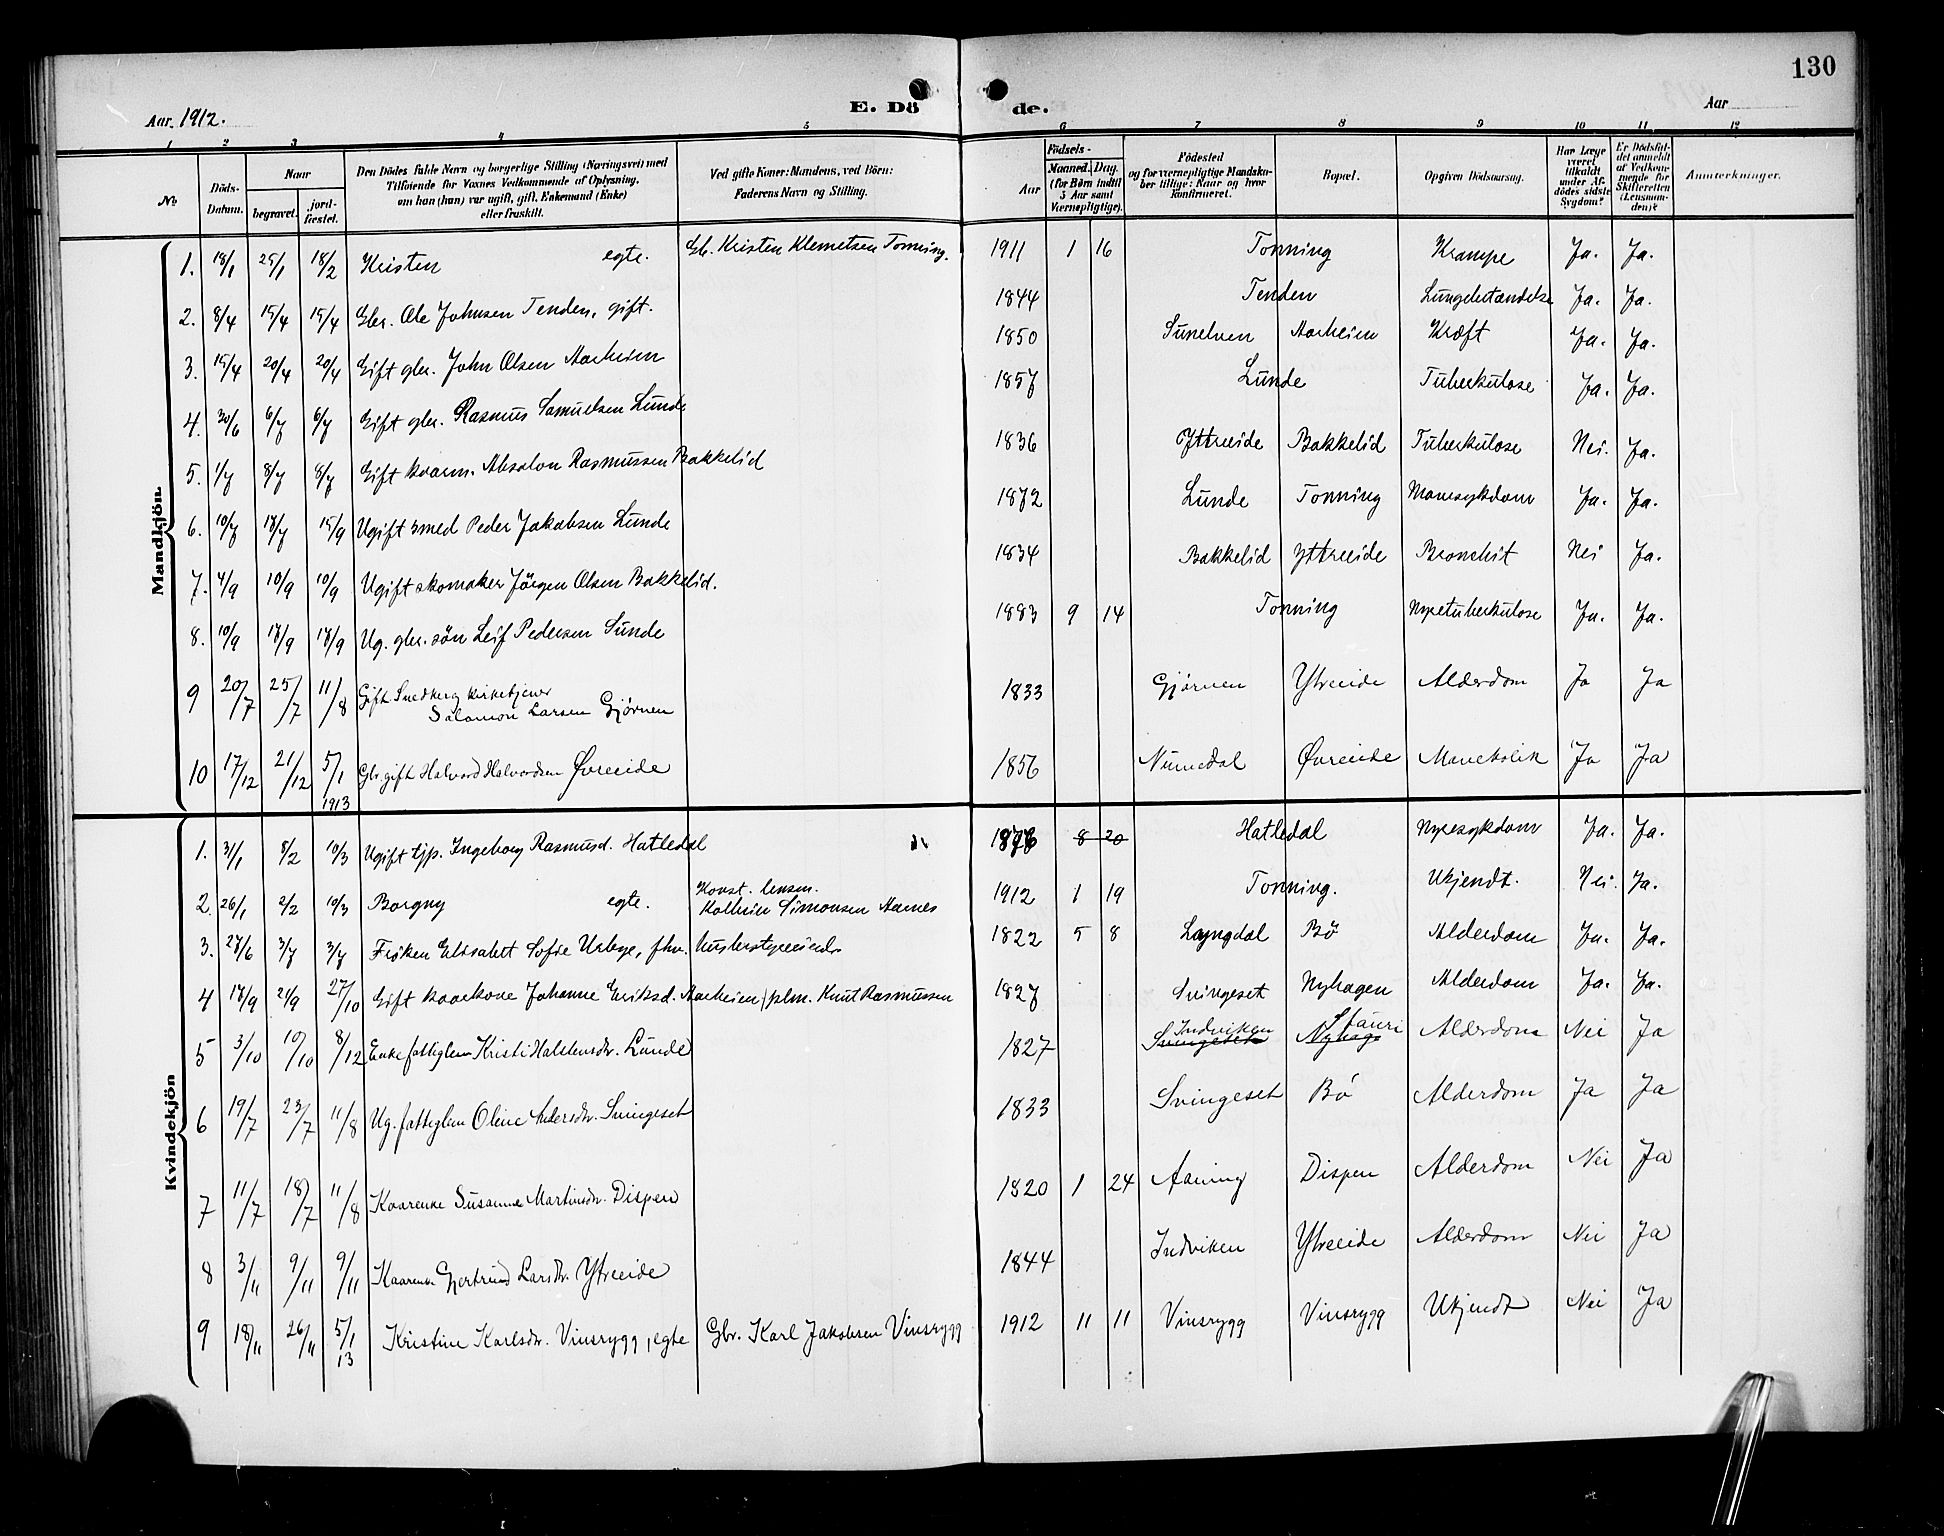 130
Aar 1912. E. Dö de. Aar
1 2 3 4 5 6 7 8 9 10 11 12
No Döds-Datum. Naar begravet. jordfæstet. Den Dödes fulde Navn og borgerlige Stilling (Næringsvei) med Tilföiende for Voxnes Vedkommende af Oplysning, om han (hun) var ugift, gift, Enkemand (Enke) eller fraskilt. Ved gifte Koner: Mandens, ved Börn: Faderens Navn og Stilling. Födsels- Aar Maaned. Dag. (for Börn indtil 5 Aar samt Værnepligtige). Födested og for værnepligtige Mandskaber tillige: Naar og hvor konfirmeret. Bopæl. Opgiven Dödsaarsag. Har Læge været tilkaldt under Afdödes sidste Sygdom? Er Dödsfaldet anmeldt af Vedkommende for Skifteretten (Lensmanden)? Anmærkninger.
Mandkjön.
1. 18/1 25/1 18/2 Kristen egte. Gb. Kristen Klemetsen Tonning. 1911 1 16 Tonning Krampe Ja. Ja.
2. 8/4 15/4 15/4 Gbr. Ole Johnsen Tenden, gift. 1844 Tenden Lungebetændelse Ja. Ja.
3. 15/4 20/4 20/4 Gift gbr. John Olsen Aarheien 1850 Sunelven Aarheien Kræft Ja. Ja.
4. 30/6 6/7 6/7 Gift gbr. Rasmus Samuelsen Lunde 1857 Lunde Tuberkulose Ja. Ja.
5. 1/7 8/7 8/7 Gift kaarm. Absalon Rasmussen Bakkelid 1836 Yttreeide Bakkelid Tuberkulose Nei. Ja.
6. 10/7 17/7 15/9 Ugift smed Peder Jakobsen Lunde 1872 Lunde Tonning Mavesykdom Ja. Ja.
7. 4/9 10/9 10/9 Ugift skomaker Jörgen Olsen Bakkelid. 1834 Bakkelid Yttreeide Bronchit Nei Ja.
8. 10/9 17/9 17/9 Ug. gbr. sön Leif Pedersen Sunde 1883 9 14 Tonning Nyretuberkulose Ja. Ja.
9 20/7 25/7 11/8 Gift Snedker og kirketjener
Salamon Larsen Gjørven 1833 Gjørven Ytreeide Alderdom Ja Ja
10 17/12 21/12 5/1 1913 Gbr. gift Halvard Halvardsen Øvreeide 1856 Numedal Øvreeide Mavekolik Ja Ja
Kvindekjön
1. 31/1 8/2 10/3 Ugift tjp. Ingeborg Rasmusd. Hatledal 1876 8 20 Hatledal Nyresykdom Ja. Ja.
2. 26/1 2/2 10/3 Borgny egte. Konst. lensm.
Kolbein Simonsen Aarnes 1912 1 19 Tonning. Ukjendt. Nei. Ja.
3. 27/6 3/7 3/7 Fröken Elisabett Sofie Urbye, fhv. husbestyrerinde 1822 5 8 Lyngdal Bö Alderdom Ja. Ja.
4 17/9 21/9 27/10 Gift kaarkone Johanne Eriksd. Aarheien / plm. Knut Rasmussen 1827 Svingeset Nyhagen Alderdom Ja. Ja.
5 3/10 10/10 8/12 Enke fattiglem Kristi Halstensdr. Lunde 1827 Indviken Svingeset Stauri Nyhage Alderdom Nei Ja
6 19/7 23/7 11/8 Ug. fattiglem Oline Andersdr. Svingeset 1833 Svingeset Bö Alderdom Ja Ja
7 11/7 18/7 11/8 Kaarenke Susanne Martinsdr. Dispen 1820 1 24 Aaning Dispen Alderdom Nei Ja
8 3/11 9/11 9/11 Kaarenke Gjertrud Larsdr. Ytreeide 1844 Indviken Ytreeide Alderdom Nei Ja
9 18/11 26/11 5/1 13 Kristine Karlsdr. Vinsrygg, egte Gbr. Karl Jakobsen Vinsrygg 1912 11 11 Vinsrygg Vinsrygg Ukjendt Nei Ja